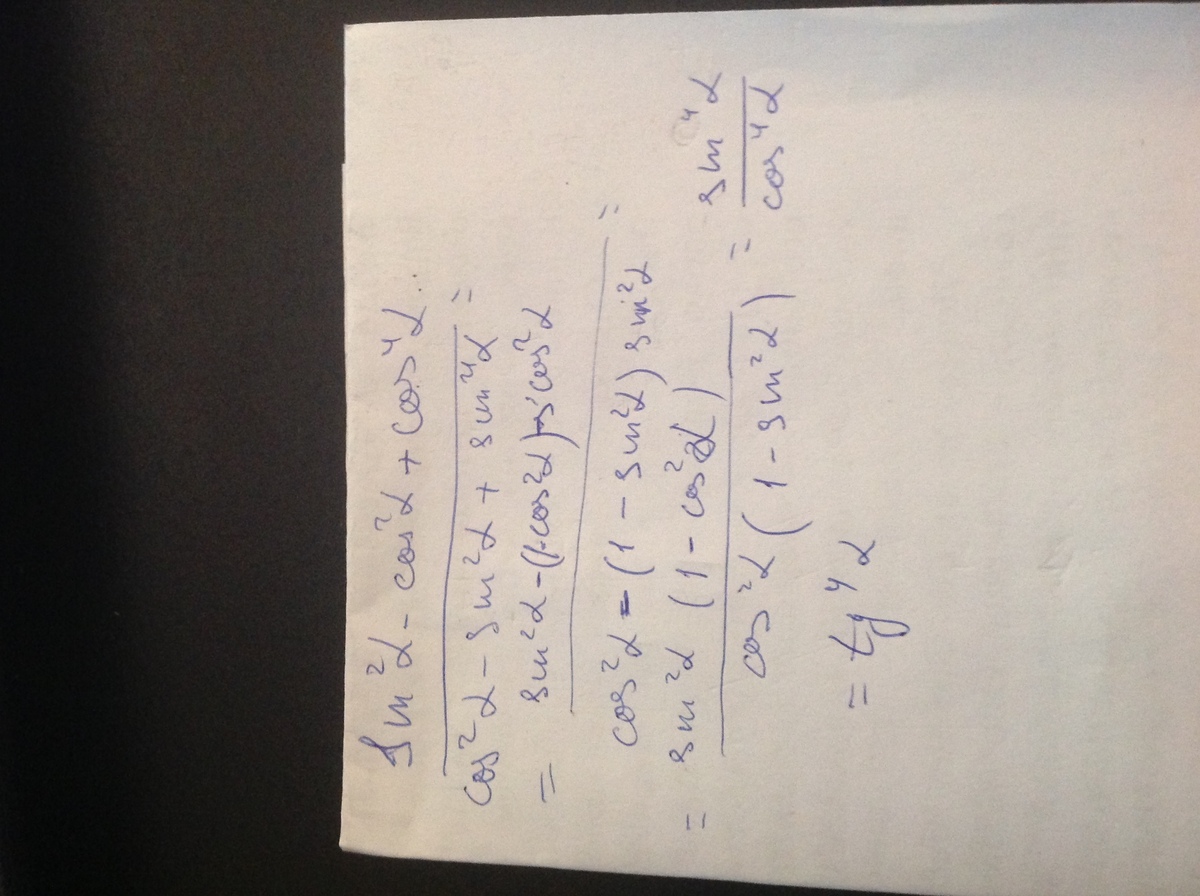 sin²α - cos²α + cos⁴α
cos²α - sin²α + sin⁴α =
= sin²α - (1-cos²α) cos²α
cos²α - (1 - sin²α) sin²α =
= sin²α (1 - cos²α)
cos²α (1 - sin²α) =
sin⁴α
cos⁴α
= tg⁴α